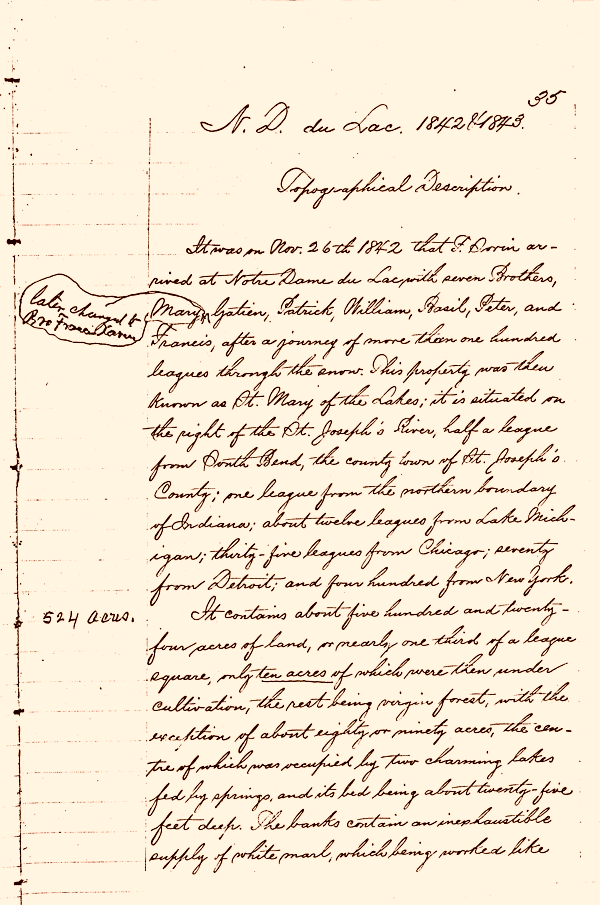 35
N. D. du Lac. 1842 & 1843.
Topographical Description.
It was on Nov. 26th 1842 that F. Sorin ar-
rived at Notre Dame du Lac, with seven Brothers,
later changed to
Bro Francis Xavier
Mary, Gatien, Patrick, William, Basil, Peter, and
Francis, after a journey of more than one hundred
leagues through the snow. This property was then
known as St. Mary of the Lakes; it is situated on
the right of the St. Joseph's River, half a league
from South Bend, the county town of St. Joseph's
County; one league from the northern boundary
of Indiana; about twelve leagues from Lake Mich-
igan; thirty-five leagues from Chicago; seventy
from Detroit; and four hundred from New York.
524 acres.
It contains about five hundred and twenty-
four acres of land, or nearly one third of a league
square, only ten acres of which were then under
cultivation, the rest being virgin forest, with the
exception of about eighty or ninety acres, the cen-
tre of which was occupied by two charming lakes
fed by springs, and its bed being about twenty-five
feet deep. The banks contain an inexhaustible
supply of white marl, which being worked like